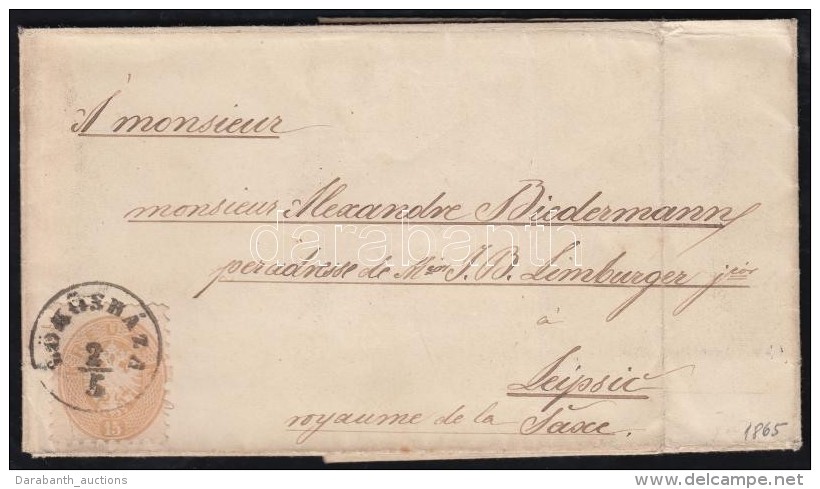 À monsieur
monsieur Alexandre Biedermann
per adresse de Mssr J. B. Limburger jnior
à
Leipsic
royaume de la Saxe.
LÖKÖSHÁZA
2/5
15
1865
darabanth
Darabanth_auctions
delcampe.net